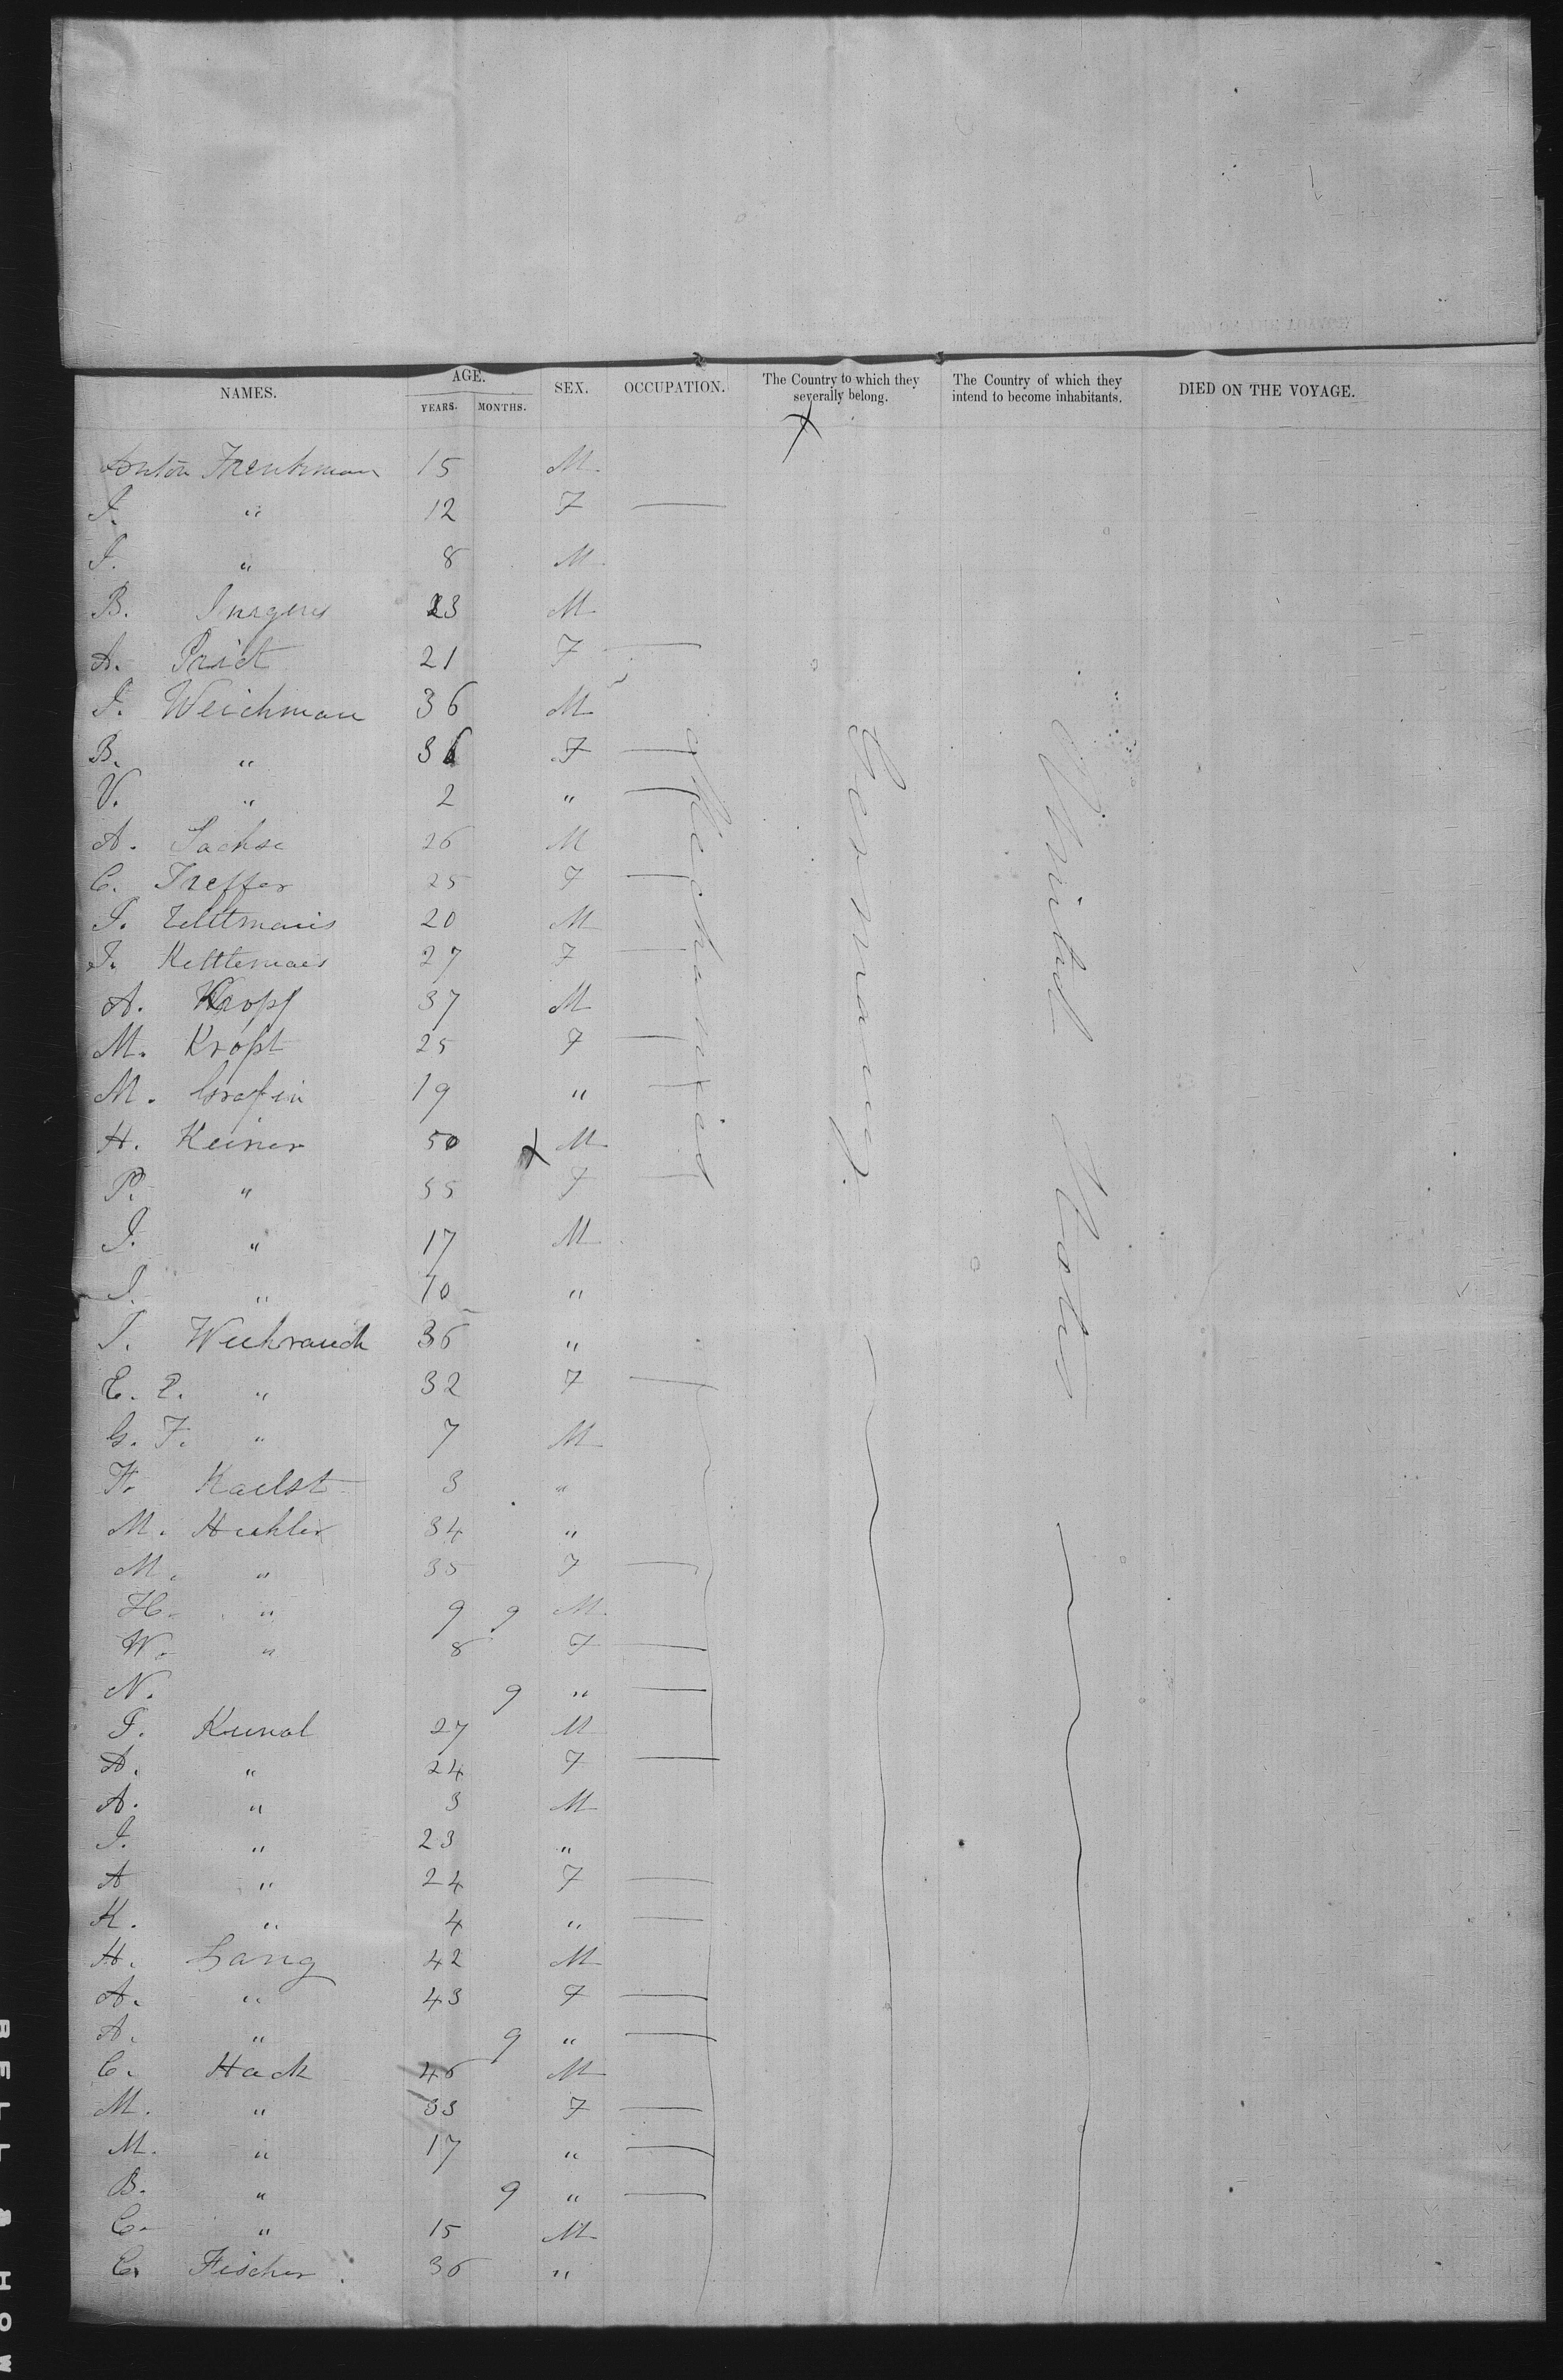 NAMES. AGE. YEARS. MONTHS. SEX. OCCUPATION. The Country to which they severally belong. The Country of which they intend to become inhabitants. DIED ON THE VOYAGE.
Anton Frenkman 15 M
J. " 12 F —
J. " 8 M
B. Jurgens 23 M
A. Prict 21 F —
J. Weichman 36 M
B. " 36 F —
V. " 2 " —
A. Sachse 26 M
C. Treffer 25 F —
J. 20 M
J. 27 F —
A. Kropf 37 M
M. Kropt 25 F —
M. Grafin 19 " —
H. Keiner 50 M
P. " 55 F —
J. " 17 M
J. " 10 "
J. Weihrauch 36 "
E. E. " 32 F —
G. F. " 7 M
F. Kaelst 3 "
M. Huhler 34 "
M. " 35 F —
H. " 9 9 M
W. " 8 F —
N. 9 " —
J. Kunal 27 M
A. " 24 F —
A. " 3 M
J. " 23 "
A " 24 F —
K. " 4 " —
H. Lang 42 M
A. " 43 F —
A. " 9 " —
C. Hack 46 M
M. " 33 F —
M. " 17 " —
B. " 9 " —
C. " 15 M
C. Fischer 36 "
Mechanics
Germany.
United States
BELL & HOW